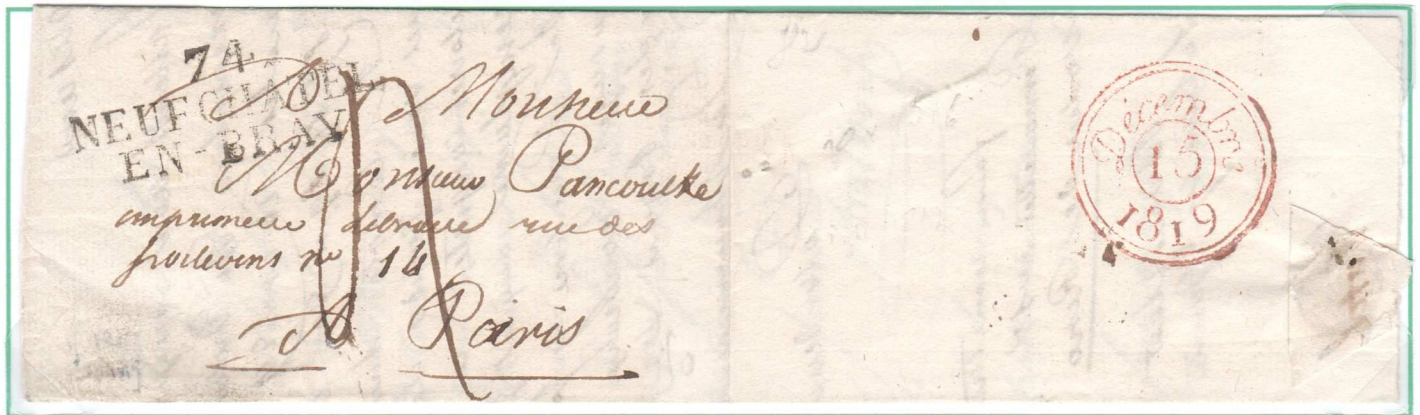 74
NEUFCHATEL
EN-BRAY
A Monsieur
Monsieur Pancoulke
imprimeur libraire rue des
poitevins n° 14
A Paris
Décembre
15
1819